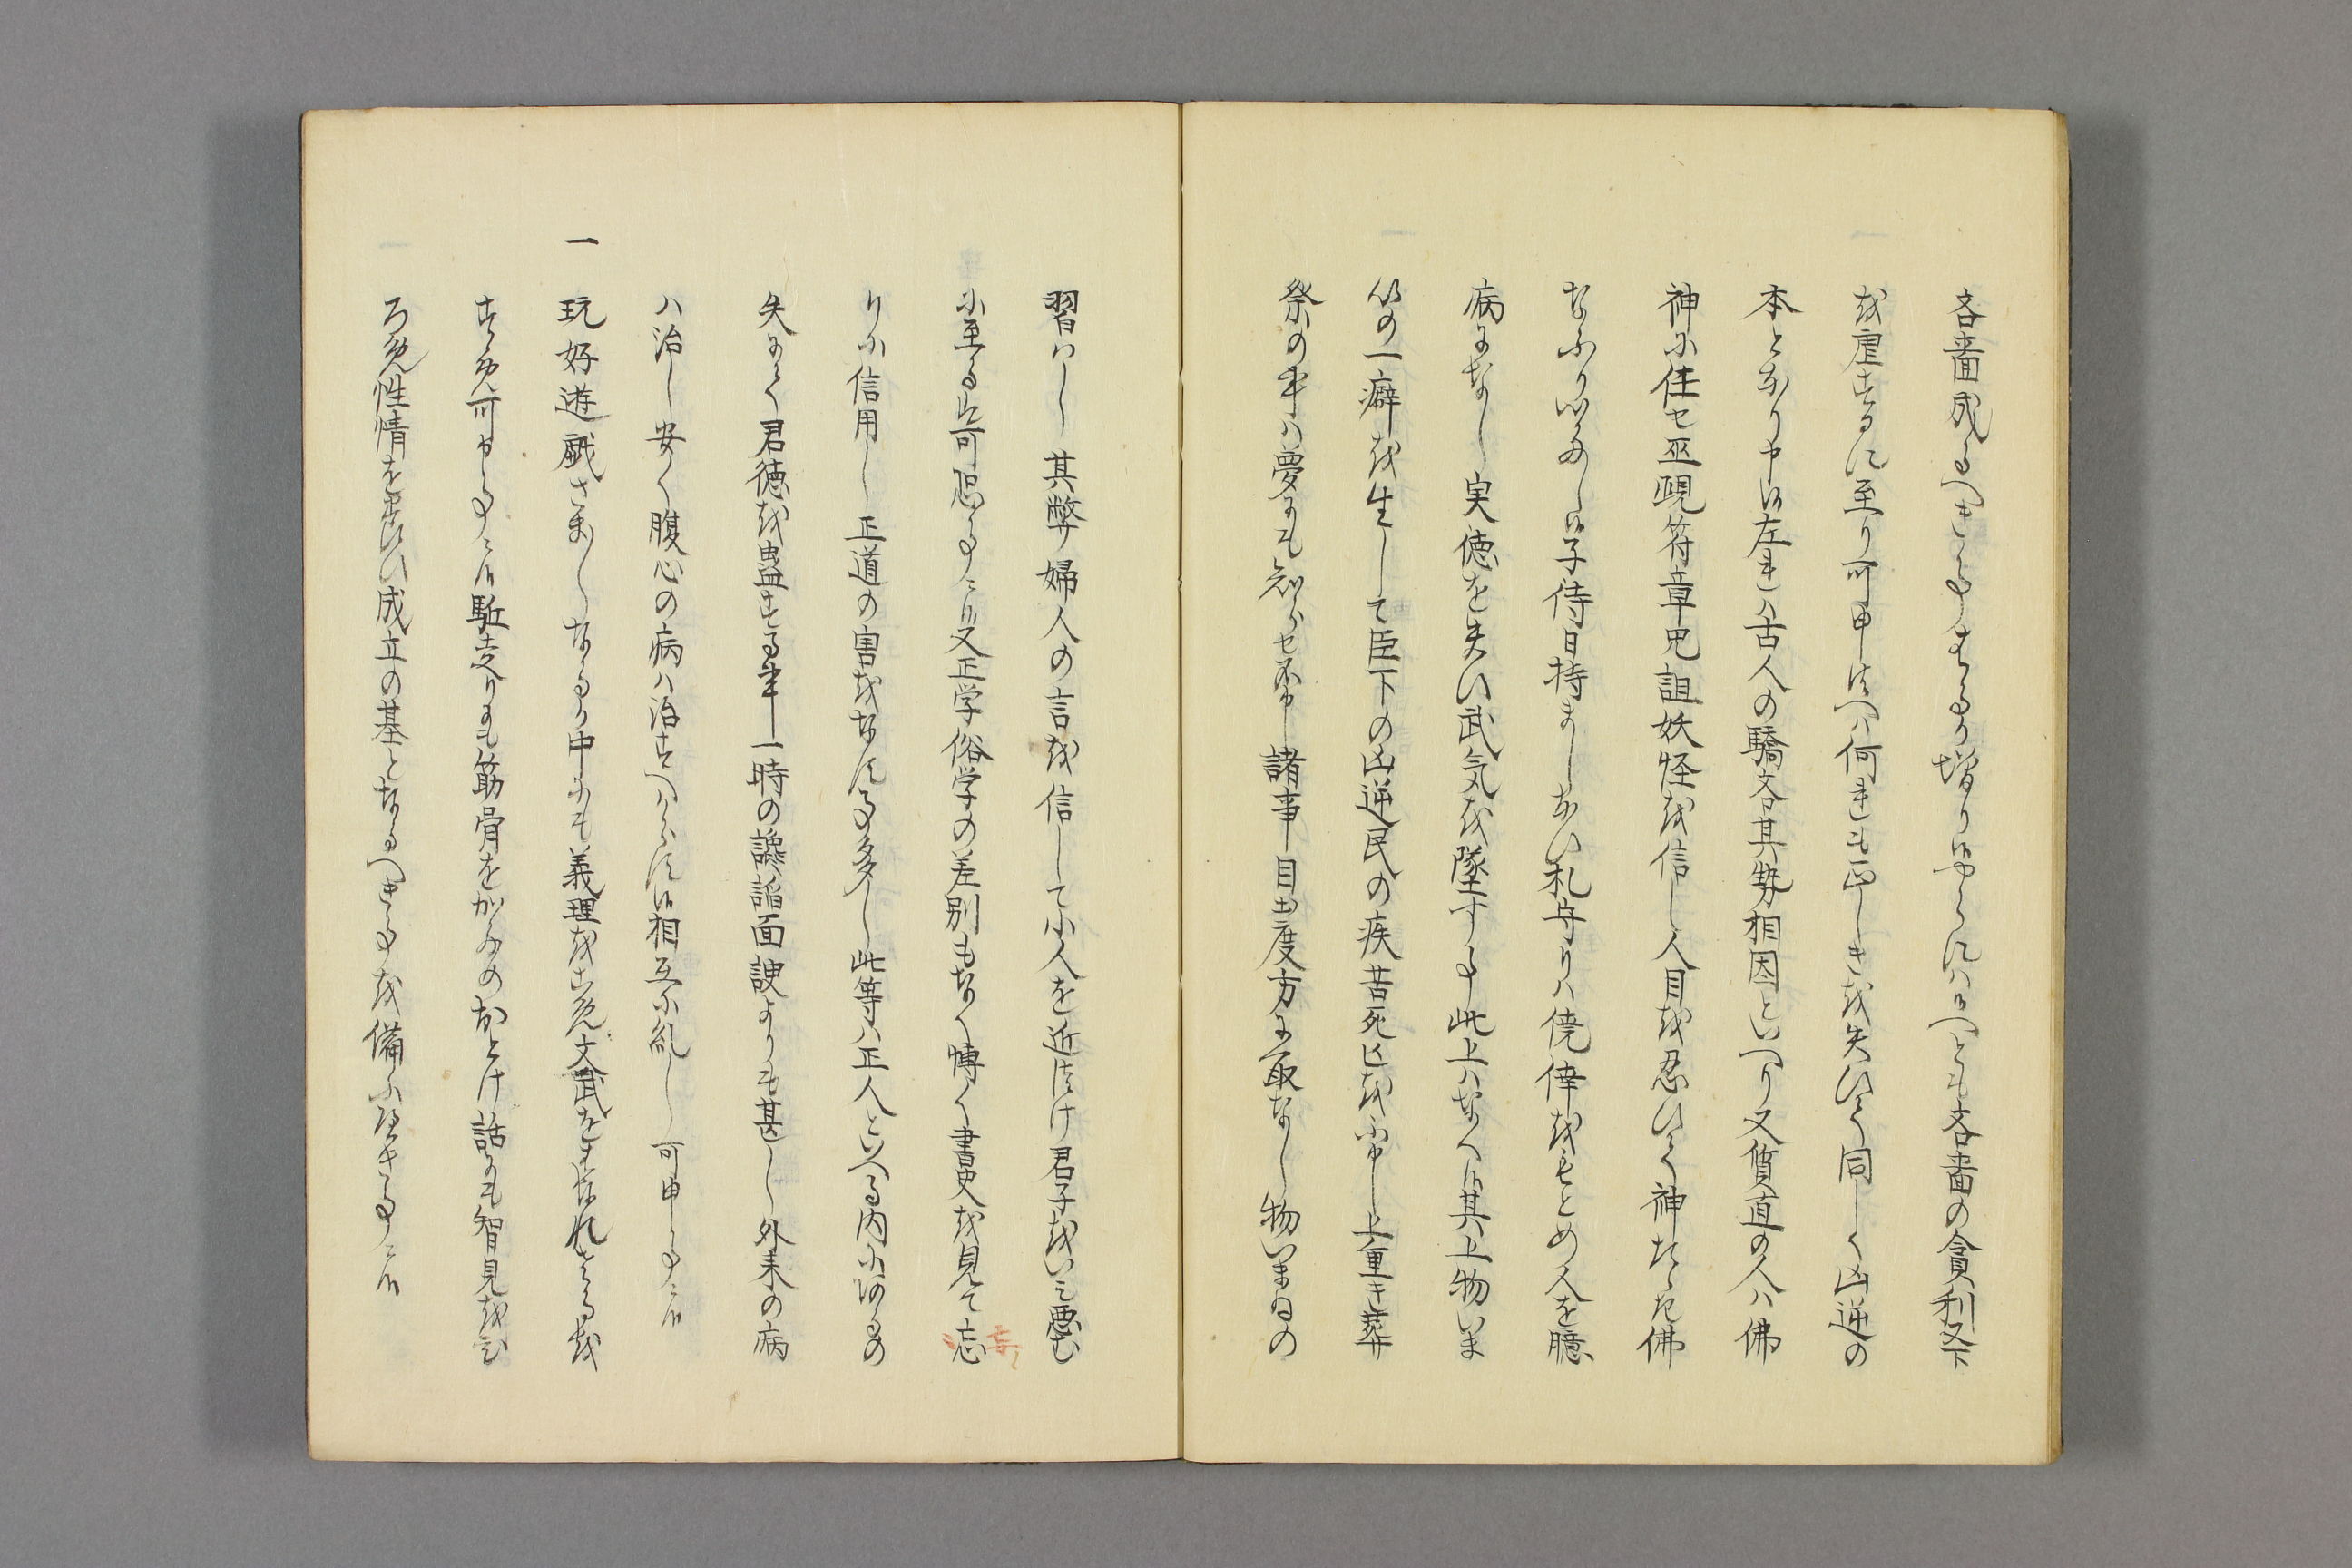 吝嗇成るへき事なるか増り候やらんハ候へとも吝嗇の貪利又下
を虐するに至り可申候へハ何れも正しきを失ひて同しく凶逆の
本となり申候左れハ古人の驕吝其勢相因といへり又質直の人ハ佛
神に任せ巫覡符章咒詛妖怪を信し人目を忍ひて神たゝき佛
なふりいたし候子侍日待ましない札守りハ僥倖をもとめ人を臆
病になし実徳を失い武気を墜する事此上ハなく候其上物いま
ひの一癖を生して臣下の凶逆民の疾苦死亡を不申上重き葬
祭の事ハ夢にも知らせ不申諸事目出度方に取なし物いまひの
習ハし其弊婦人の言を信して小人を近つけ君子をいミ悪む
に至る候可恐事ニ候又正学俗学の差別もなく博く書史を見て忘
りに信用し正道の害をなす事多し此等ハ正人といへる内にあるの
失にて君徳を蠱する事一時の讒謟面諛よりも甚し外来の病
ハ治し安く腹心の病ハ治すへからす候相互に糺し可申事ニ候
一 玩好遊戯さま〳〵なるか中にも義理をこめ文武をはなれさるを
すゝめ可申事ニ候駈走りも筋骨をかためのおとけ話にも智見をひ
ろめ性情を養ひ成立の基となるへき事を備ふ如き事ニ候